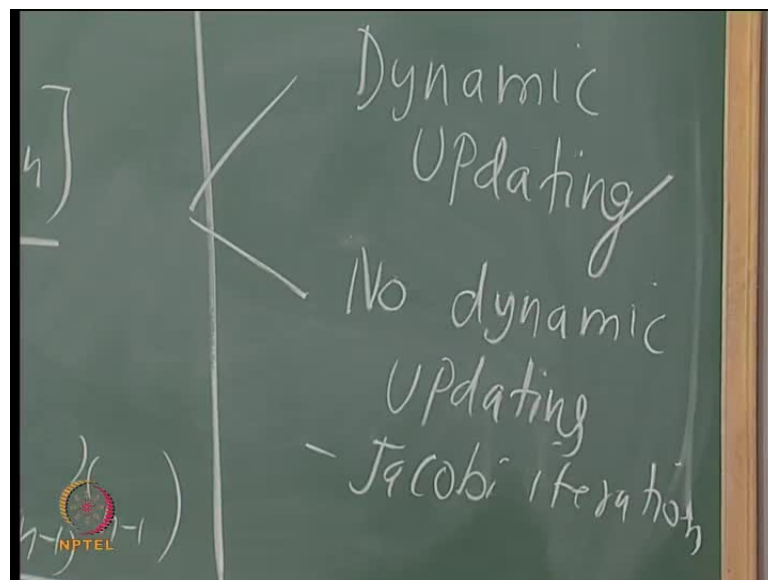 Dynamic
Updating
n]
No dynamic
Updating
- Jacobi iteration
n-1) n-1)
NPTEL